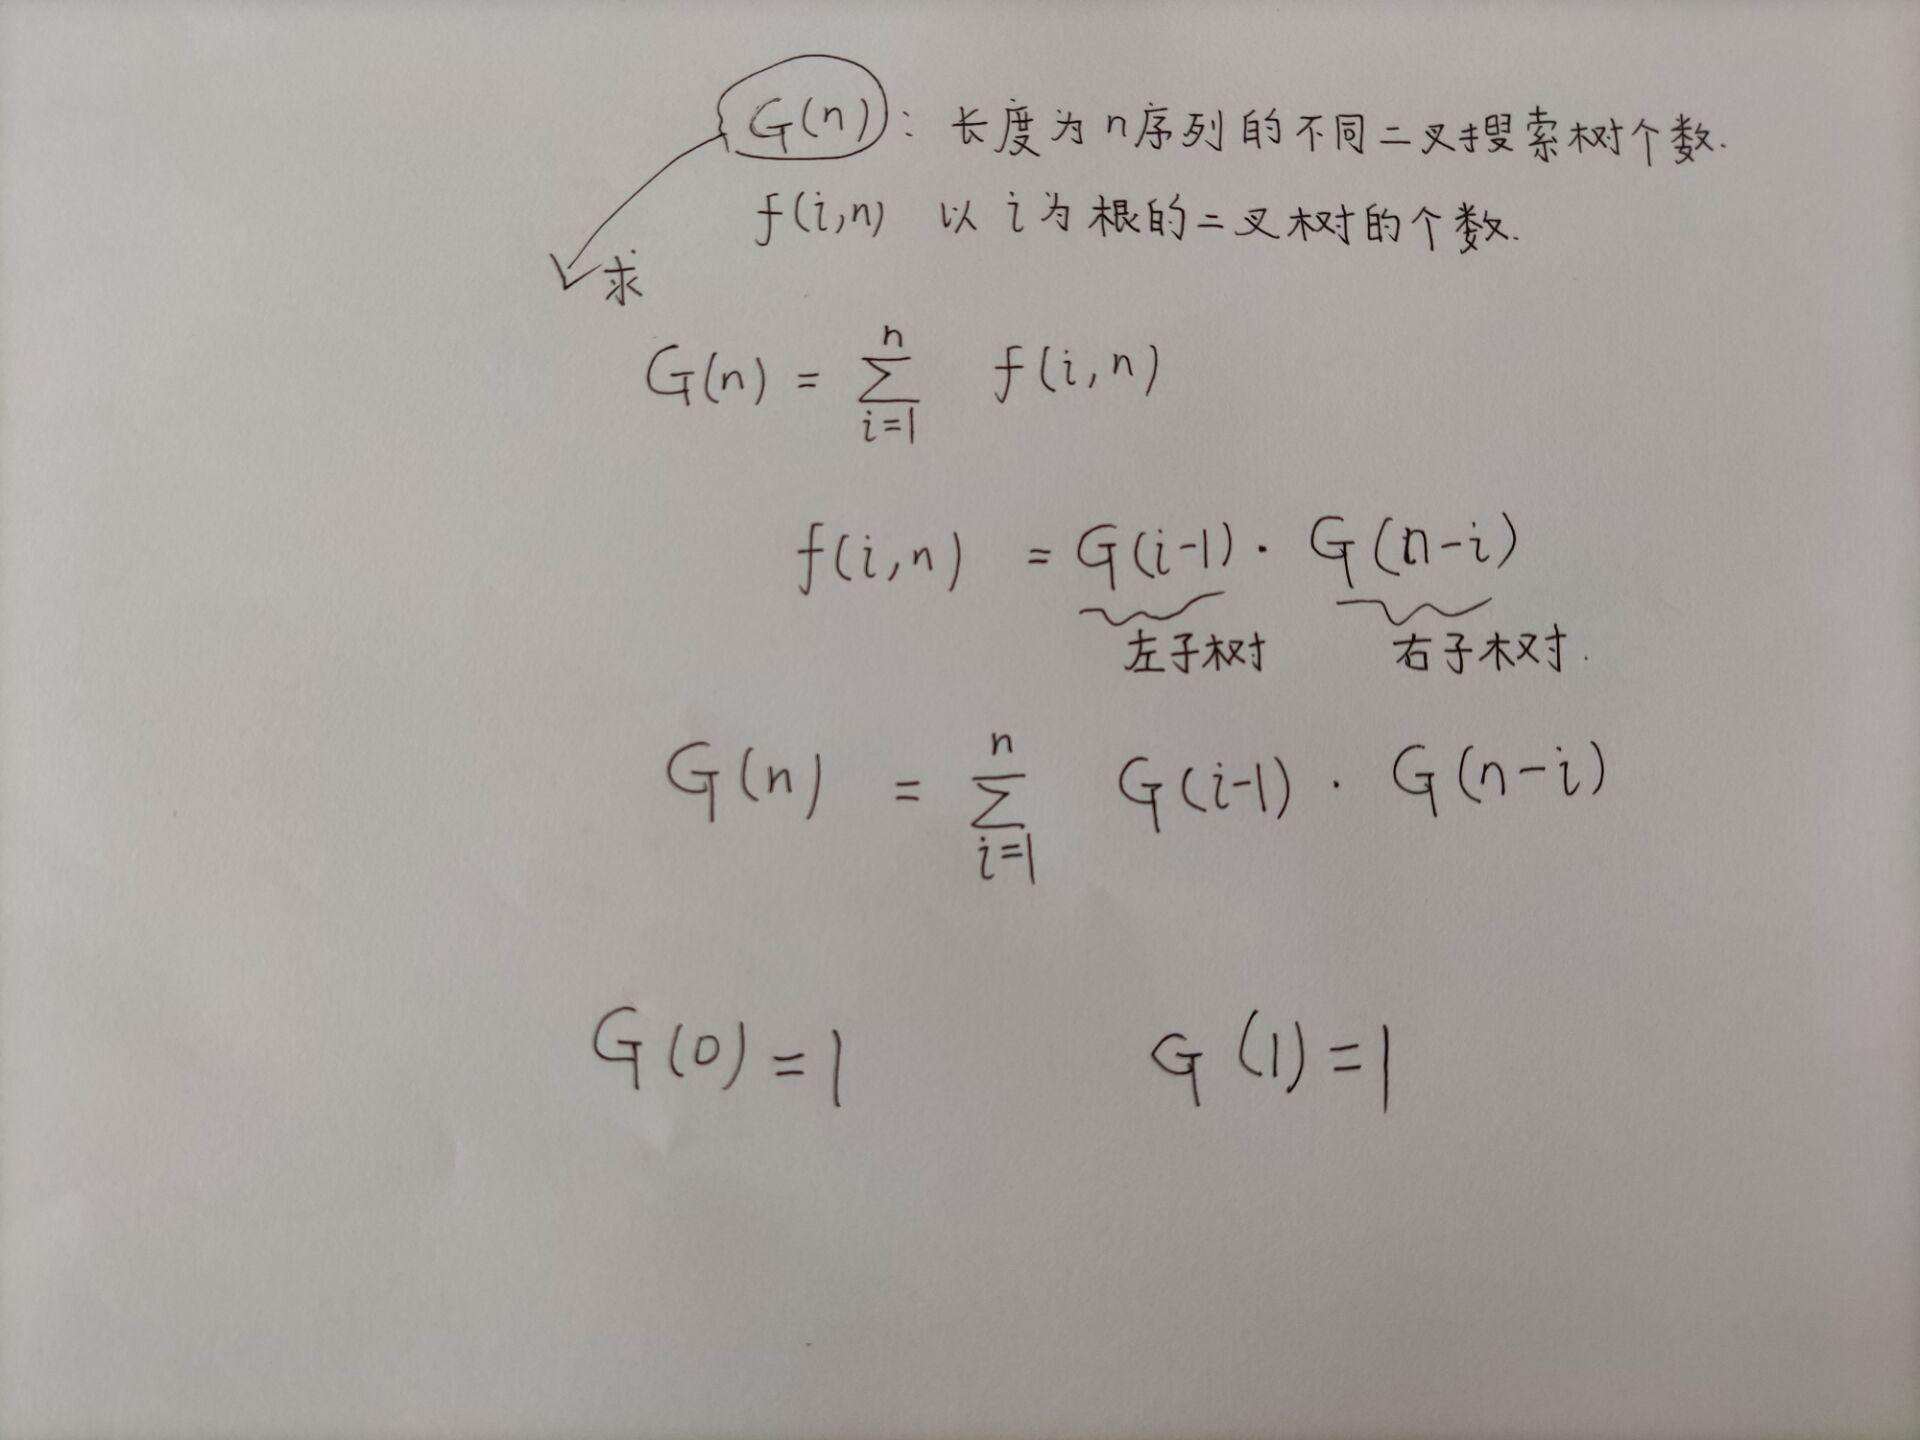 G(n): 长度为n序列的不同二叉搜索树个数.
f(i,n) 以i为根的二叉树的个数.
求
n
G(n) = ∑ f(i,n)
i=1
f(i,n) = G(i-1) · G(n-i)
左子树 右子树.
n
G(n) = ∑ G(i-1) · G(n-i)
i=1
G(0)=1 G(1)=1